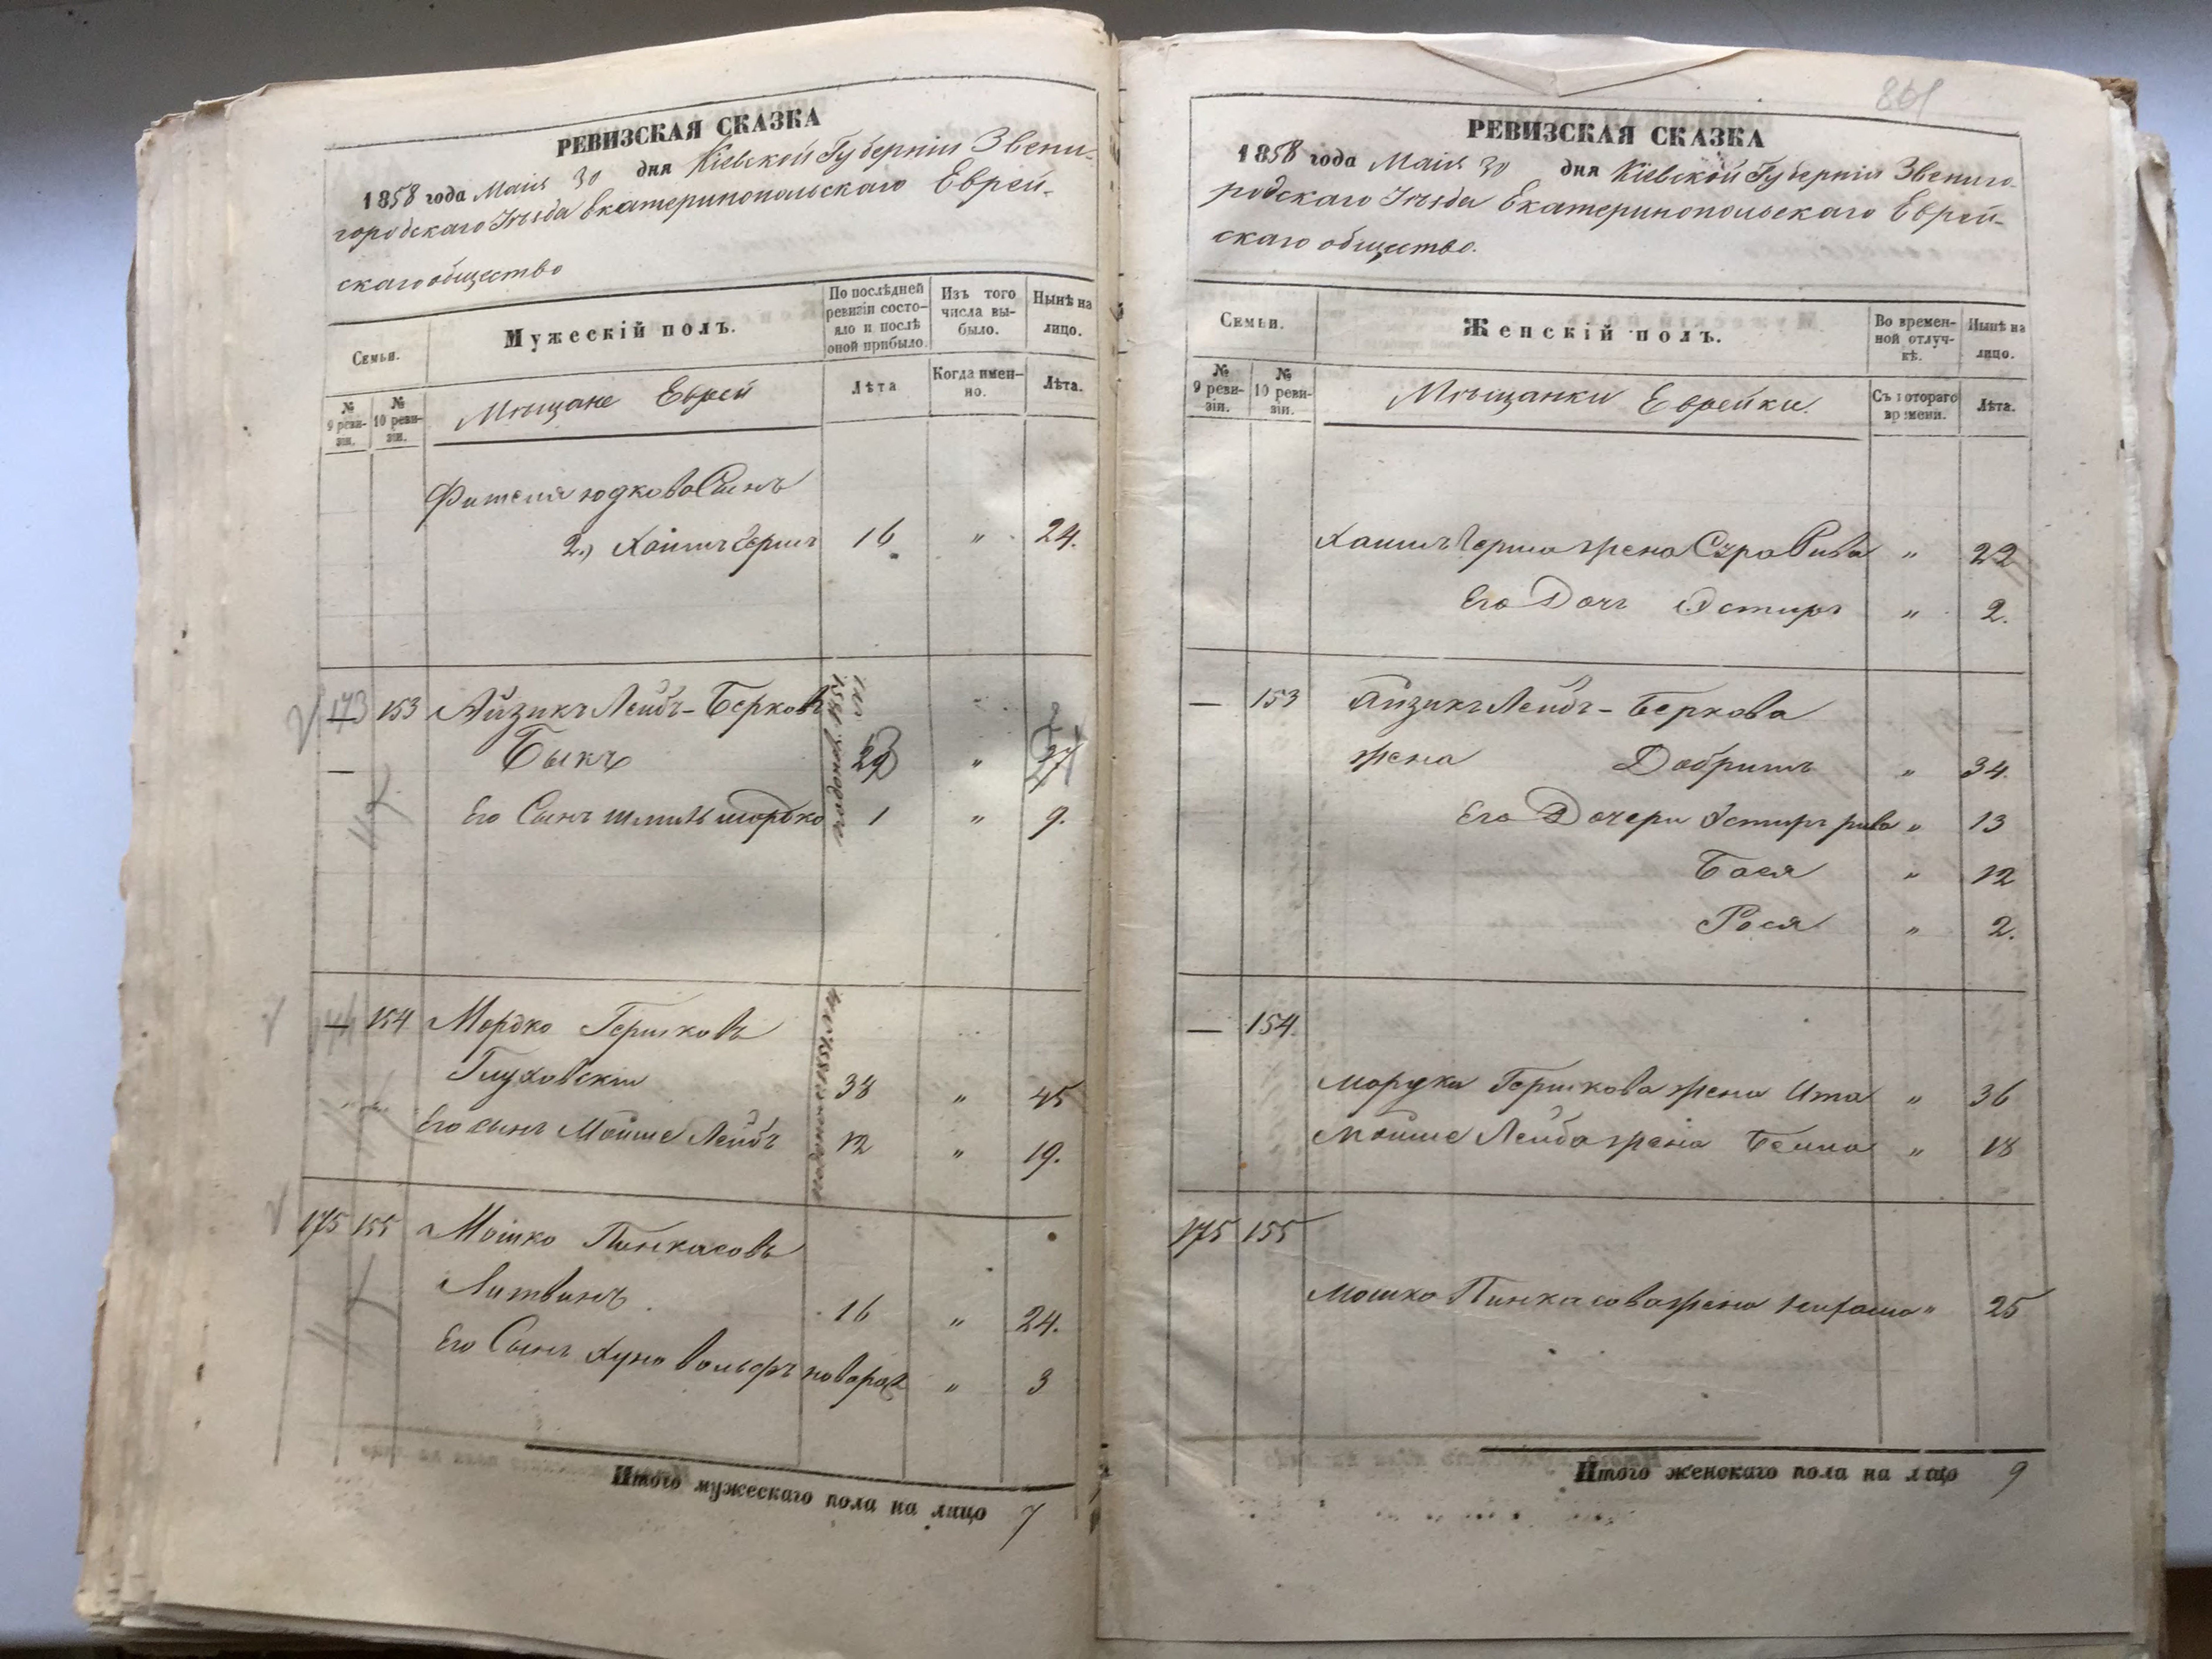 РЕВИЗСКАЯ СКАЗКА
1858 года Маія 30 дня Кіевской Губерніи Звени-
городскаго Уѣзда Екатеринопольскаго Еврей-
скаго общество
Семьи.
Мужескій полъ.
По послѣдней ревизіи состояло и послѣ оной прибыло.
Изъ того числа выбыло.
Нынѣ на лицо.
№ 9 ревизіи.
№ 10 ревизіи.
Мѣщане Еврей
Лѣта
Когда именно.
Лѣта.
Юдкова Сынъ
2.) Хаимъ Гершъ 16 " 24.
173 153 Айзикъ Лейбъ-Берковъ
Быкъ "
Его Сынъ Шмиль Мордко 1 " 9.
по допол. 1851
— 154 Мордко Гершковъ
Глуховскій 38 " 45
Его сынъ Мойше Лейбъ 12 " 19.
175 155 Мошко Пинкасовъ
Литвинъ 16 " 24.
Его Сынъ Хуна Вольфъ новорож " 3
Итого мужескаго пола на лицо 7
861
РЕВИЗСКАЯ СКАЗКА
1858 года Маія 30 дня Кіевской Губерніи Звениго-
родскаго Уѣзда Екатеринопольскаго Еврей-
скаго общество.
Семьи.
Женскій полъ.
Во временной отлучкѣ.
Нынѣ на лицо.
№ 9 ревизіи.
№ 10 ревизіи.
Мѣщанки Еврейки.
Съ котораго времени.
Лѣта.
Хаимъ Герша жена Сура Рива " 22
Его Доч Эстиръ " 2.
— 153 Айзикъ Лейбъ-Беркова
жена Добришъ " 34.
Его Дочери Эстиръ рива " 13
Бася " 12
Рося " 2.
— 154.
Мордка Гершкова жена Ита " 36
Мойше Лейба жена Бейла " 18
175 155
Мошка Пинкасова жена " 25
Итого женскаго пола на лицо 9